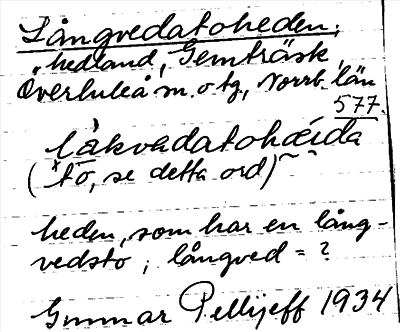 Långvedatoheden,
hedland, Gemträsk,
Överluleå sn. o tg, Norrb. län
577.
låkvadatohæida
(to, se detta ord)
heden, som har en lång-
vedsto; långved = ?
Gunnar Pellijeff 1934